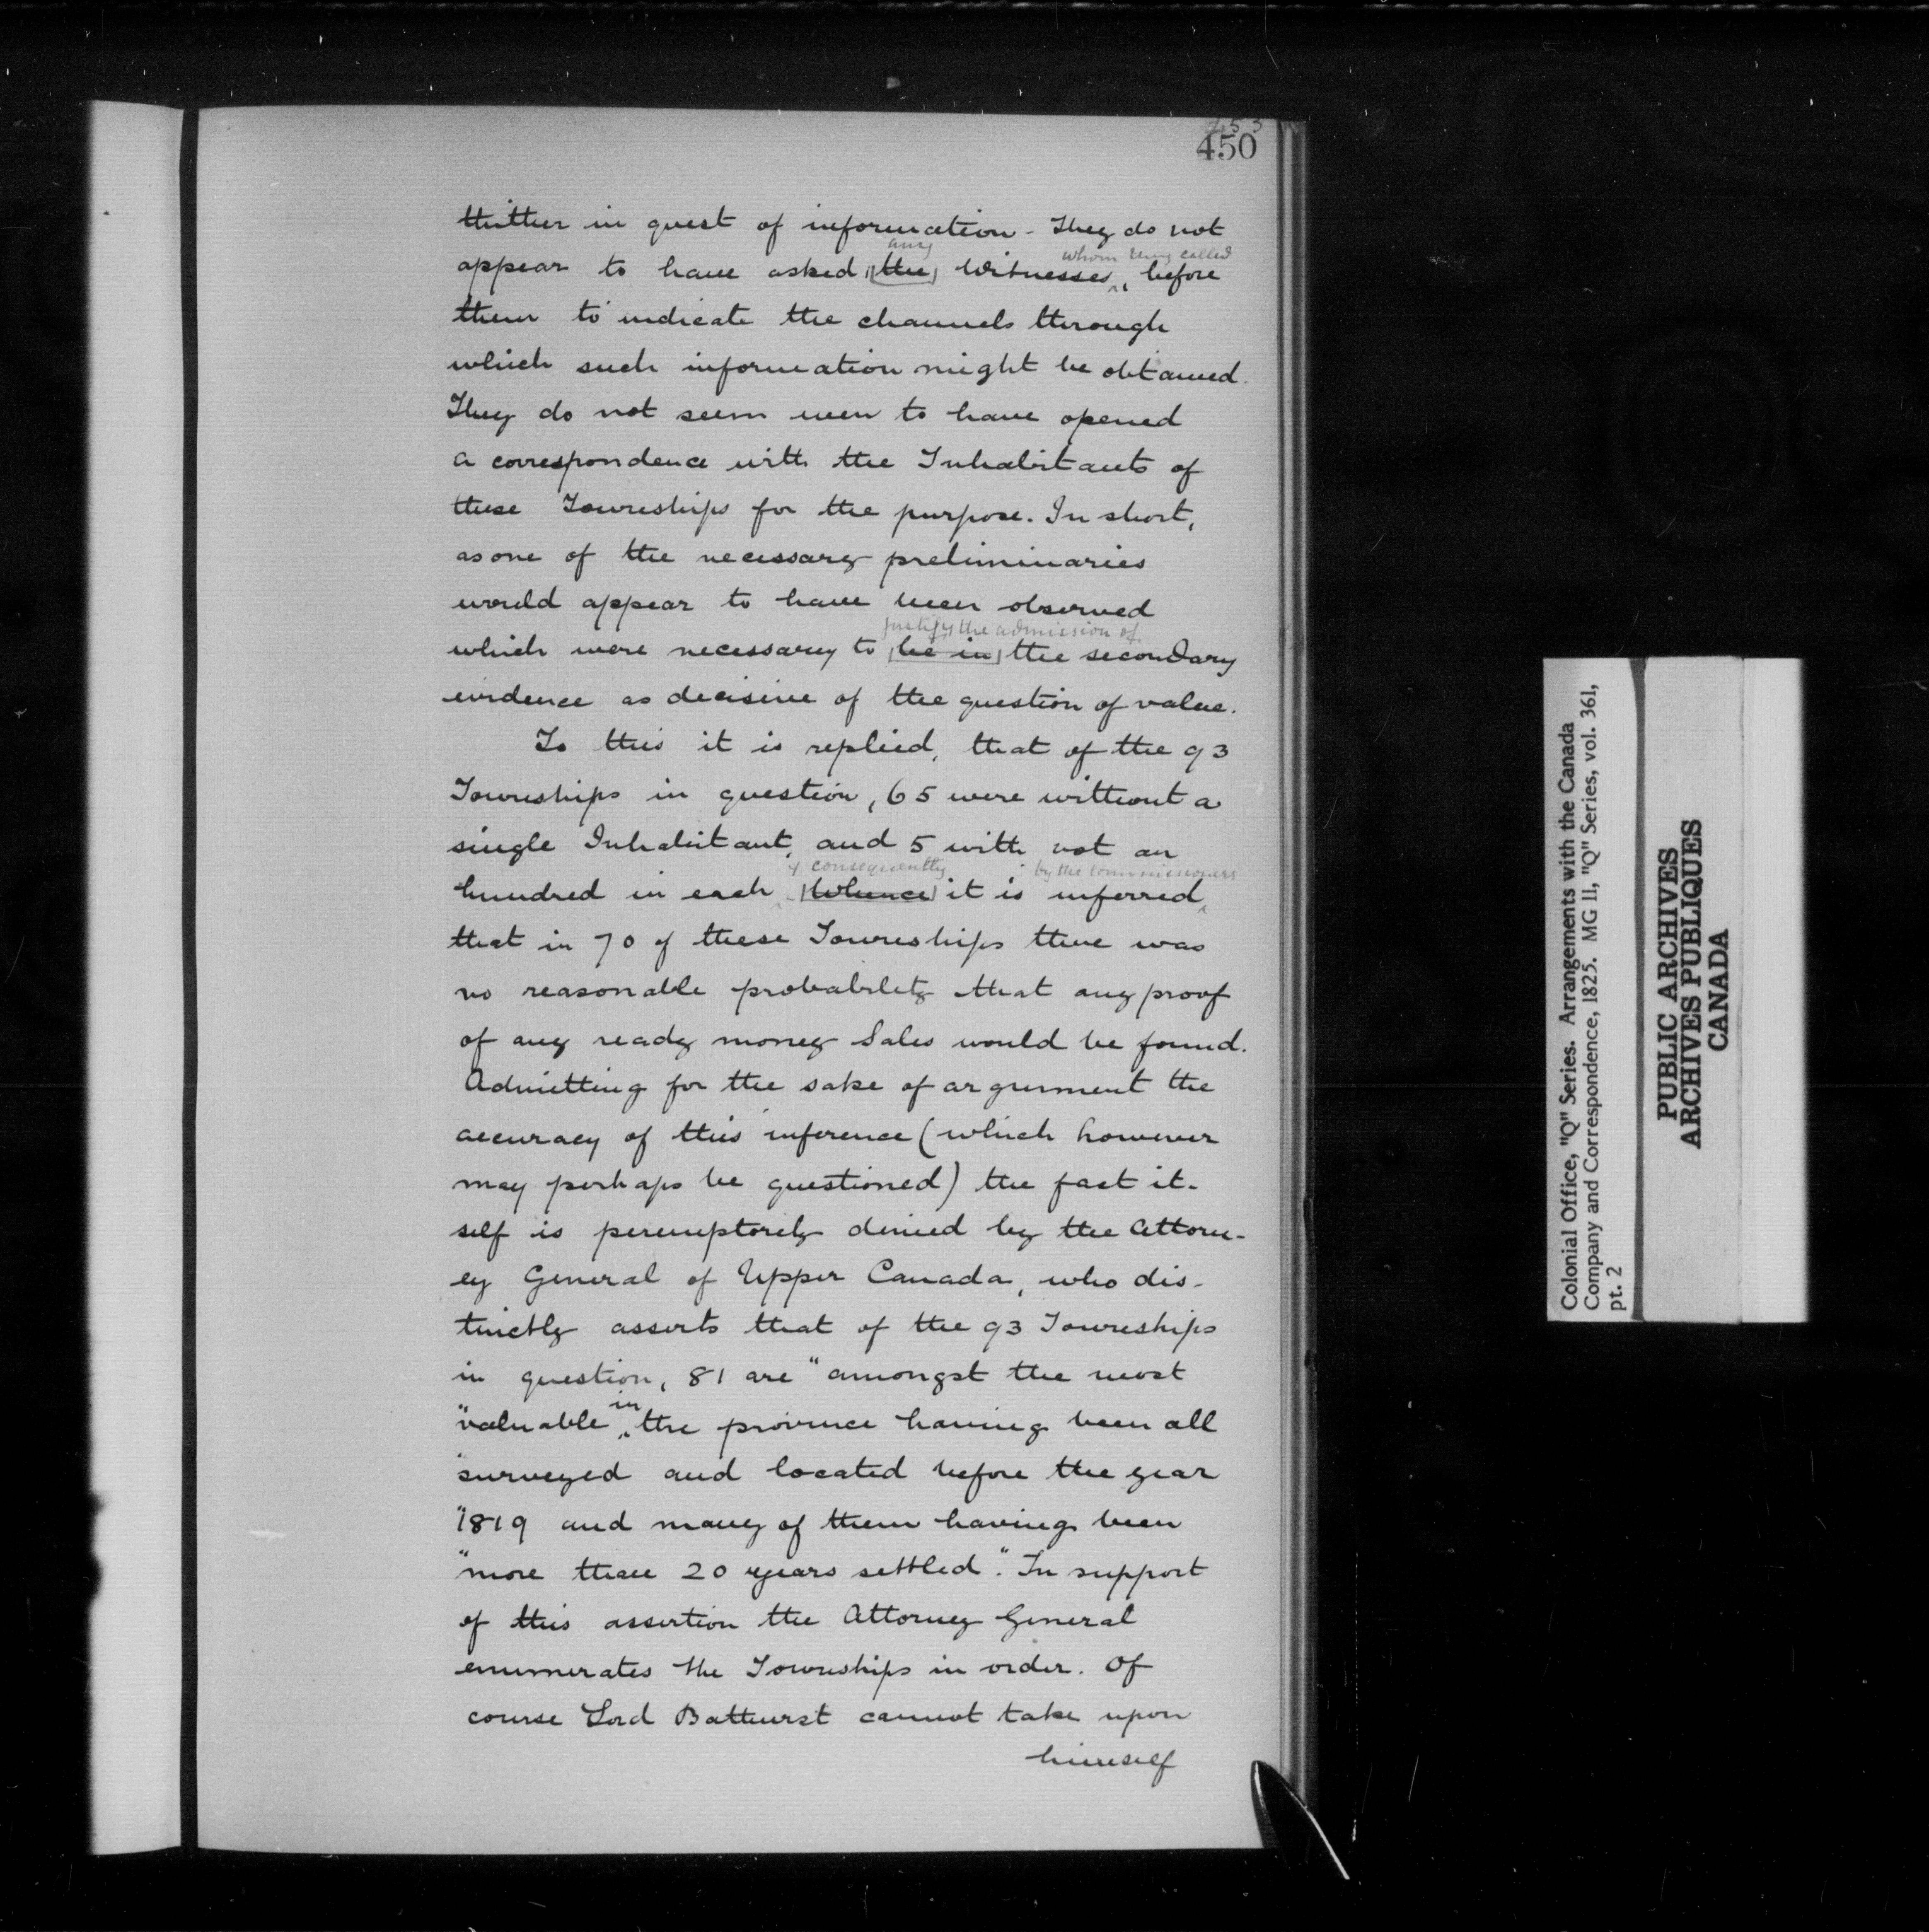 453
450
thither in quest of information - They do not
any whom they called
appear to have asked the Witnesses, before
them to indicate the channels through
which such information might be obtained.
They do not seem even to have opened
a correspondence with the Inhabitants of
these Townships for the purpose. In short,
as one of the necessary preliminaries
would appear to have been observed
justify the admission of
which were necessary to be in the secondary
evidence as decisive of the question of value.
To this it is replied, that of the 93
Townships in question, 65 were without a
single Inhabitant, and 5 with not an
& consequently by the Commissioners
hundred in each. Whence it is inferred
that in 70 of these Townships there was
no reasonable probability that any proof
of any ready money Sales would be found.
Admitting for the sake of argument the
accuracy of this inference (which however
may perhaps be questioned) the fact it-
self is peremptorily denied by the Attorn-
ey General of Upper Canada, who dis-
tinctly asserts that of the 93 Townships
in question, 81 are "amongst the most
in
"valuable the province having been all
"surveyed and located before the year
"1819 and many of them having been
"more than 20 years settled". In support
of this assertion the Attorney General
enumerates the Townships in order. Of
course Lord Bathurst cannot take upon
himself
Colonial Office, "Q" Series. Arrangements with the Canada
Company and Correspondence, 1825. MG 11, "Q" Series, vol. 361,
pt. 2
PUBLIC ARCHIVES
ARCHIVES PUBLIQUES
CANADA